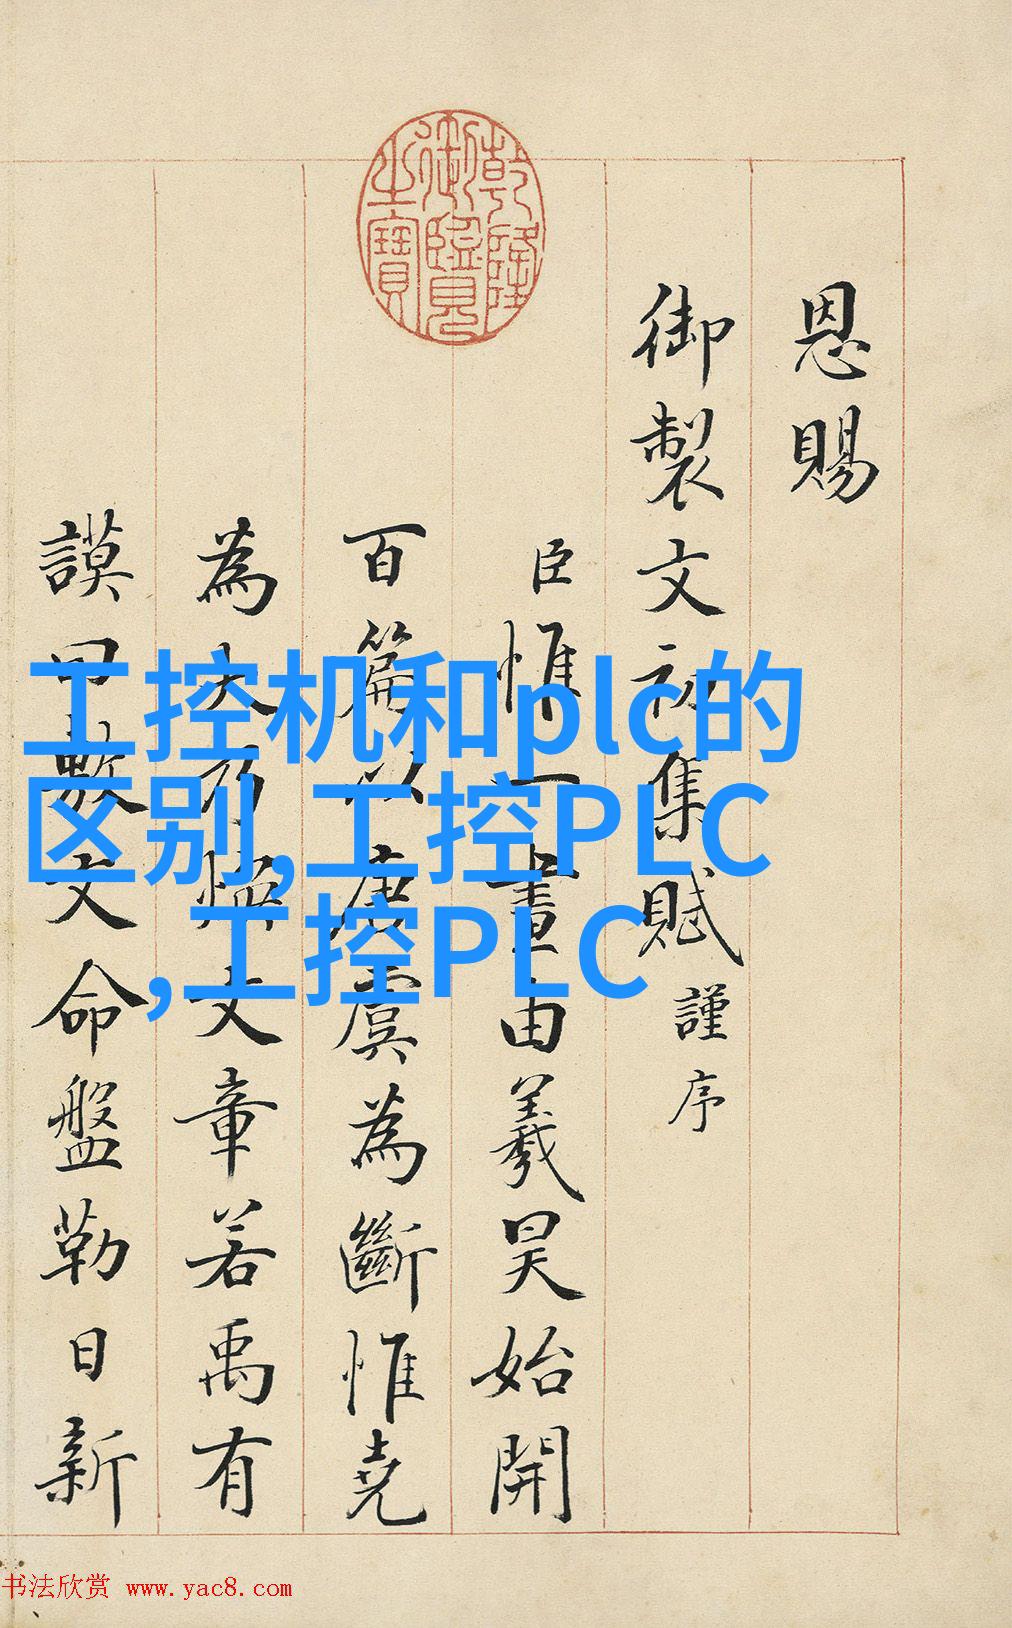 恩賜
御製文初集賦謹序
臣惟一畫由羲昊始開
百篇以唐虞為斷惟堯
為大乃煥文章若禹有
謨曰敷文命盤勒日新
乾隆御覽之寶
工控机和plc的
区别,工控PLC
,工控PLC
书法欣赏 www.yac8.com